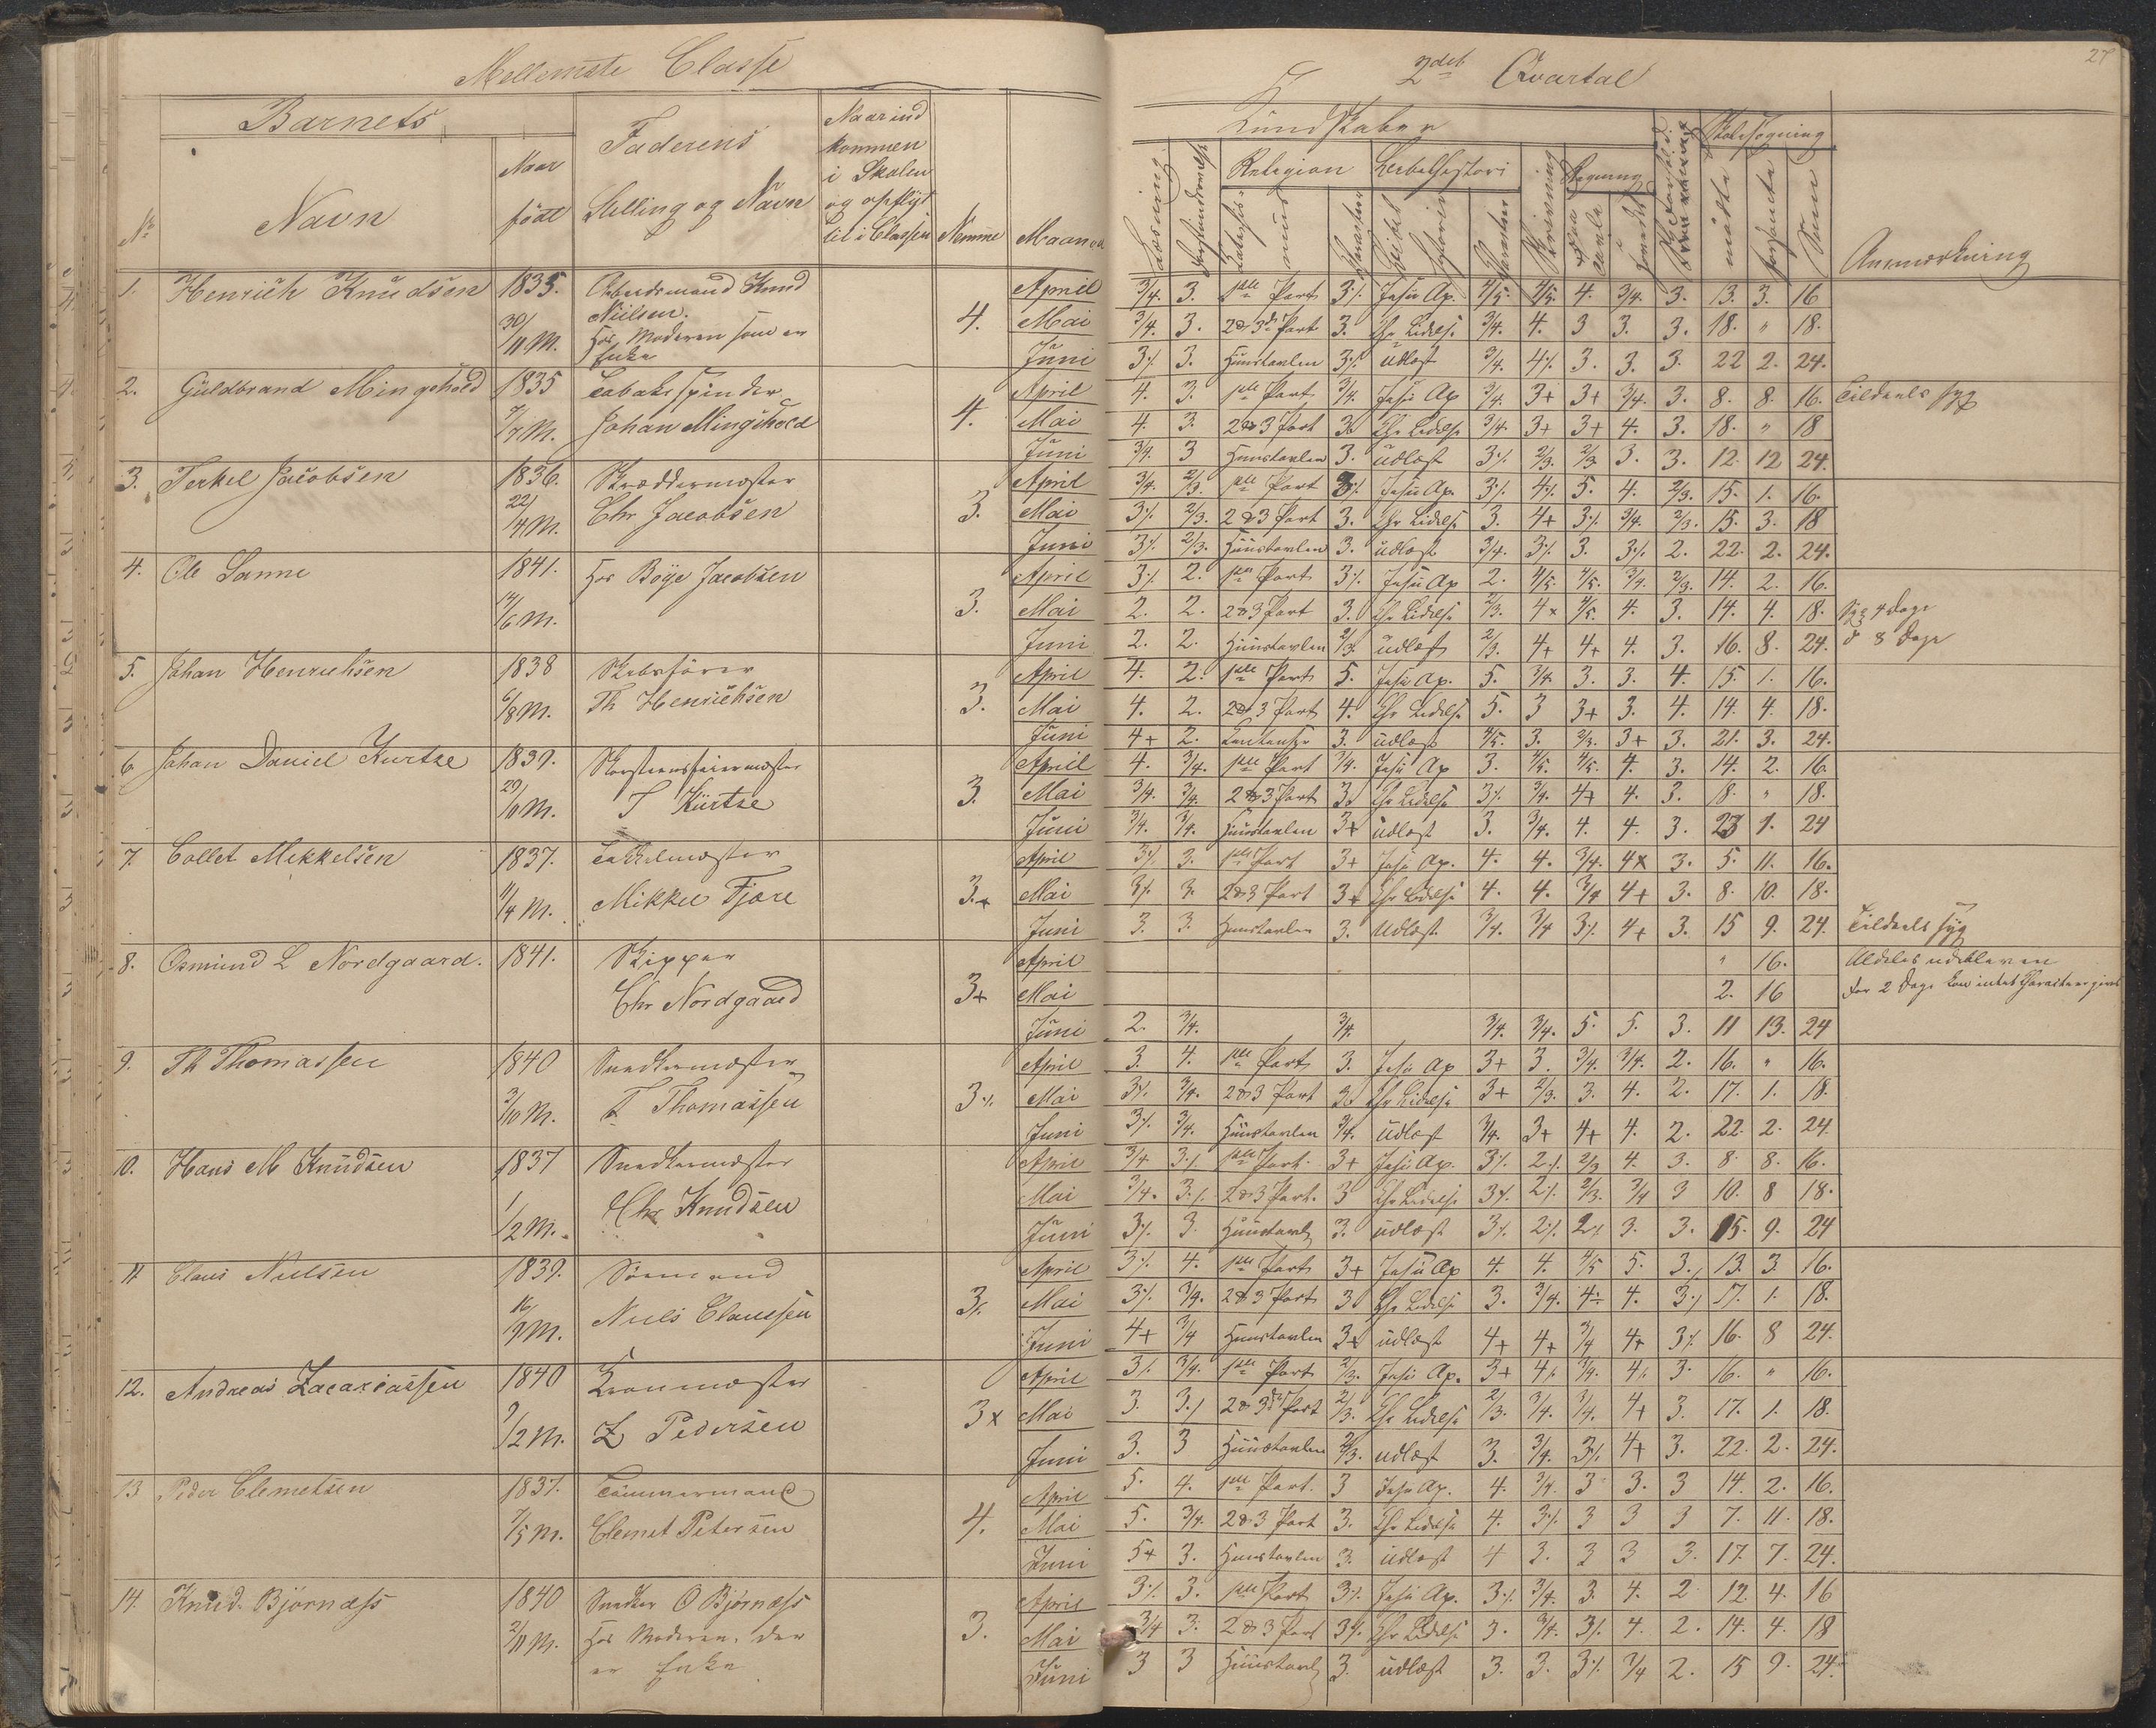 Mellemste Classe
Barnets
Faderens
Naar ind
kommen
i Skolen
og opflyt
tet i Classen
Naar
født
Nº
Navn
Stilling og Navn
Nemme
Maaned
1. Henrich Knudsen 1835. Arbeidsmand Knud
30/11 M. Nielsen.
Hos Moderen som er
Enke
4.
April
Mai
Juni
2. Guldbrand Mingshold 1835 Tobaksspinder
7/7 M. Johan Mingshold
4.
April
Mai
Juni
3. Terkel Jacobsen 1836. Skræddermester
22/4 M. Chr Jacobsen
3.
April
Mai
Juni
4. Ole Sanne 1841. Hos Böye Jacobsen
14/6 M.
3.
April
Mai
Juni
5. Johan Henrichsen 1838 Skibsfører
6/8 M. Th Henrichsen
3.
April
Mai
Juni
6. Johan Daniel Kurtze 1839. Skorsteensfeiermester
29/11 M. J Kurtze
3.
April
Mai
Juni
7. Collet Mikkelsen 1837. Takkelmester
11/4 M. Mikkel Fjære
3.+
April
Mai
Juni
8. Osmund L Nordgaard. 1841. Skipper
Chr Nordgaard
3+
April
Mai
Juni
9. Th Thomassen 1840 Snedkermester
3/10 M. T Thomassen
3%
April
Mai
Juni
10. Hans M Knudsen 1837 Snedkermester
1/2 M. Chr Knudsen
April
Mai
Juni
11 Claus Nielsen 1839. Sömand
16/9 M. Niels Claussen
3%
April
Mai
Juni
12. Andreas Zacariassen 1840 Kranmester
9/2 M. Z Pedersen
3x
April
Mai
Juni
13 Peder Clemetsen 1837. Tømmermand
7/5 M. Clemet Petersen
4.
April
Mai
Juni
14. Knud Bjørnæss 1840 Snedker O Bjørnæss
2/11 M. Hos Moderen, der
er Enke
3.
April
Mai
Juni
27
2det Qvartal
Kundskaber
Skolesøgning
Religion
Bibelhistori
Regning
Læsning
Forstandsøvelse
Katekis
mus
Karakter
Bibel
historie
Karakter
Skrivning
Paa
Tavle
i
Hovedet
mødte
forsømte
Sum
Anmærkning
3/4. 3. 1ste Part 3% Jesu Ap. 4/5. 4/5. 4. 3/4. 3. 13. 3. 16
3/4. 3. 2 & 3die Part 3. Chr Lidelse 3/4. 4. 3 3. 3. 18. " 18.
3% 3. Huustavlen 3% udlæst 3/4. 4% 3. 3. 3. 22 2. 24.
4. 3. 1ste Part 3/4. Jesu Ap 3/4. 3+ 3+ 3/4. 3. 8. 8. 16. Tildeels syg
4. 3. 2 & 3 Part 3. Chr Lidelse 3/4. 3+ 3+ 4. 3. 18. " 18
3/4. 3 Huustavlen 3. udlæst 3% 2/3. 2/3 3. 3. 12. 12 24.
3/4. 2/3. 1ste Part 3% Jesu Ap. 3% 4% 5. 4. 2/3. 15. 1. 16.
3% 2/3. 2 & 3 Part 3. Chr Lidelse 3. 4+ 3% 3/4. 2/3. 15. 3. 18
3% 2/3. Huustavlen 3. udlæst 3/4. 3% 3. 3% 2. 22. 2. 24.
3% 2. 1ste Part 3% Jesu Ap 2. 4/5. 4/5. 3/4. 2/3. 14. 2. 16.
2. 2. 2 & 3 Part 3. Chr Lidelse 2/3. 4x 4/5. 4. 3. 14. 4. 18. Syg 4 Dage
2. 2. Huustavlen 2/3. udlæst 2/3. 4+ 4+ 4. 3. 16. 8. 24. d 8 Dage
4. 2. 1ste Part 5. Jesu Ap. 5. 3/4 3. 3. 4. 15. 1. 16.
4. 2. 2 & 3 Part 4. Chr Lidelse 5. 3 3+ 3. 4. 14. 4. 18.
4+ 2. 3. udlæst 4/5. 3. 2/3. 3+ 3. 21. 3. 24.
4. 3/4. 1ste Part 3/4. Jesu Ap 3. 4/5. 4/5. 4. 3. 14. 2. 16.
3/4. 3/4. 2 & 3 Part 3. Chr Lidelse 3% 3/4. 4+ 4. 3. 18. " 18.
3/4. 3/4. Huustavlen 3+ udlæst 3. 3/4. 4. 4. 3. 23 1. 24
3% 3. 1ste Part 3+ Jesu Ap. 4. 4. 3/4. 4x 3. 5. 11. 16.
3% 3. 2 & 3 Part 3+ Chr Lidelse 4. 4. 3/4 4+ 3. 8. 10. 18.
3. 3. Huustavlen 3. Udlæst 3/4. 3/4 3% 4+ 3. 15 9. 24. Tildeels syg
" 16. Aldeles udebleven
2. 16 For 2 Dage kan intet Karakter gives
2. 3/4. 3/4. 3/4. 3/4. 5. 5. 3. 11 13. 24
3. 4. 1ste Part 3. Jesu Ap 3+ 3. 3/4. 3/4. 2. 16. " 16.
3% 3/4. 2 & 3 Part 3. Chr Lidelse 3+ 2/3. 3. 4. 2. 17. 1. 18.
3% 3/4. Huustavlen 3/4. udlæst 3/4. 3+ 4+ 4. 2. 22. 2. 24.
3/4. 3% 1ste Part. 3+ Jesu Ap. 3% 2% 2/3 4. 3. 8. 8. 16.
3/4. 3% 2 & 3 Part. 3 Chr Lidelse 3% 2% 2/3. 3/4 3 10. 8 18.
3% 3. Huustavl 3. udlæst 3% 2% 2% 3. 3. 15. 9. 24
3% 4. 1ste Part 3+ Jesu Ap 4. 4. 4/5 5. 3. 13. 3. 16.
3% 3/4. 2 & 3 Part 3 Chr Lidelse 3. 3/4. 4÷ 4. 3% 17. 1. 18.
4+ 3/4 Huustavlen 3+ udlæst 4+ 4+ 3/4 4+ 3% 16. 8 24.
3% 3/4. 1ste Part 2/3. Jesu Ap. 3+ 4% 3/4. 4% 3. 16. " 16.
3. 3% 2 & 3die Part 2/3. Chr Lidelse 2/3. 3/4. 3/4. 4+ 3. 17. 1. 18.
3. 3 Huustavlen 2/3. udlæst 3. 3/4. 3% 4+ 3. 22. 2. 24.
5. 4. 1ste Part. 3 Jesu Ap. 4. 3/4. 3 3. 3 14. 2. 16.
5. 3/4. 2 & 3 Part 3. Chr Lidelse 4. 3% 3 3 3 7. 11. 18.
5+ 3. Huustavlen 3. udlæst 4 3. 3 3 3. 17. 7. 24.
3% 3. 1ste Part 3% Jesu Ap. 3% 3/4. 3. 4. 2 12. 4. 16
3/4 3. 2 & 3 Part 3% Chr Lidelse 3. 3/4. 3% 4. 2. 14. 4. 18
3 3 Huustavl 3. udlæst 3. 3. 3% 3/4 2. 15 9. 24.